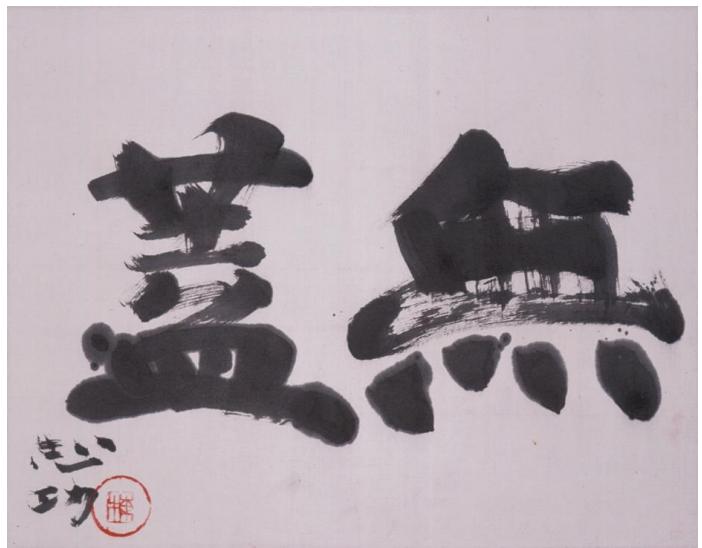 無蓋
志功